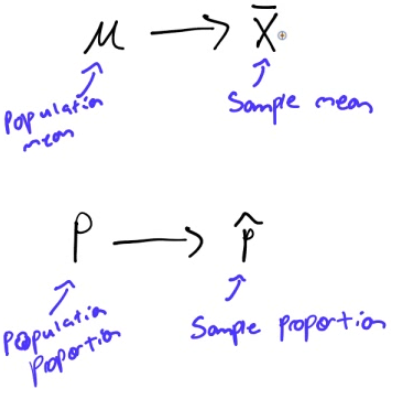 μ → X̄
Population
mean
Sample mean
P → p̂
Population
proportion
Sample proportion